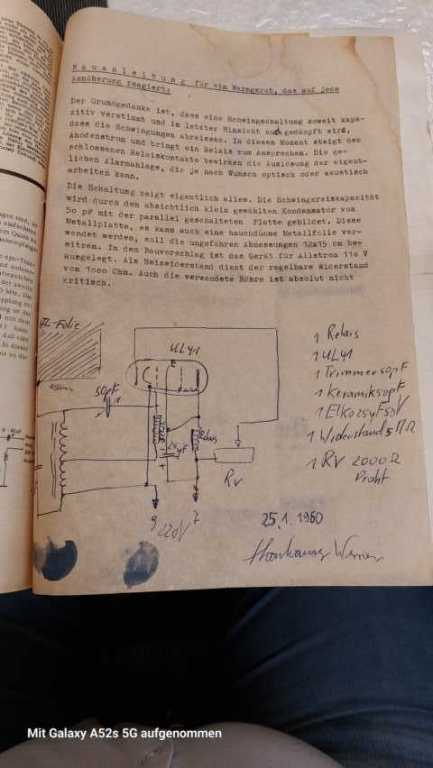 Bauanleitung für ein Warngerät, das auf jede
Annäherung reagiert:
Der Grundgedanke ist, dass eine Schwingschaltung soweit kapa-
zitiv verstimmt und in letzter Hinsicht auch gedämpft wird,
dass die Schwingungen abreissen. In diesem Moment steigt der
Anodenstrom und bringt ein Relais zum Ansprechen. Die ge-
schlossenen Relaiskontakte bewirken die Auslösung der eigent-
lichen Alarmanlage, die je nach Wunsch optisch oder akustisch
arbeiten kann.
Die Schaltung zeigt eigentlich alles. Die Schwingkreiskapazität
wird durch den absichtlich klein gewählten Kondensator von
50 pF mit der parallel geschalteten Platte gebildet. Diese
Metallplatte, es kann auch eine hauchdünne Metallfolie ver-
wendet werden, soll die ungefähren Abmessungen 12x15 cm be-
sitzen. In dem Bauvorschlag ist das Gerät für Allstrom 110 V
ausgelegt. Als Heizwiderstand dient der regelbare Widerstand
von 1000 Ohm. Auch die verwendete Röhre ist absolut nicht
kritisch.
Al-Folie
UL41
50pF
Relais
RV
220V
1 Relais
1 UL41
1 Trimmer 50pF
1 Keramik 50pF
1 Elko 25µF 50V
1 Widerstand 5 MΩ
1 RV 2000Ω
Draht
25.1.1960
Werner
Mit Galaxy A52s 5G aufgenommen